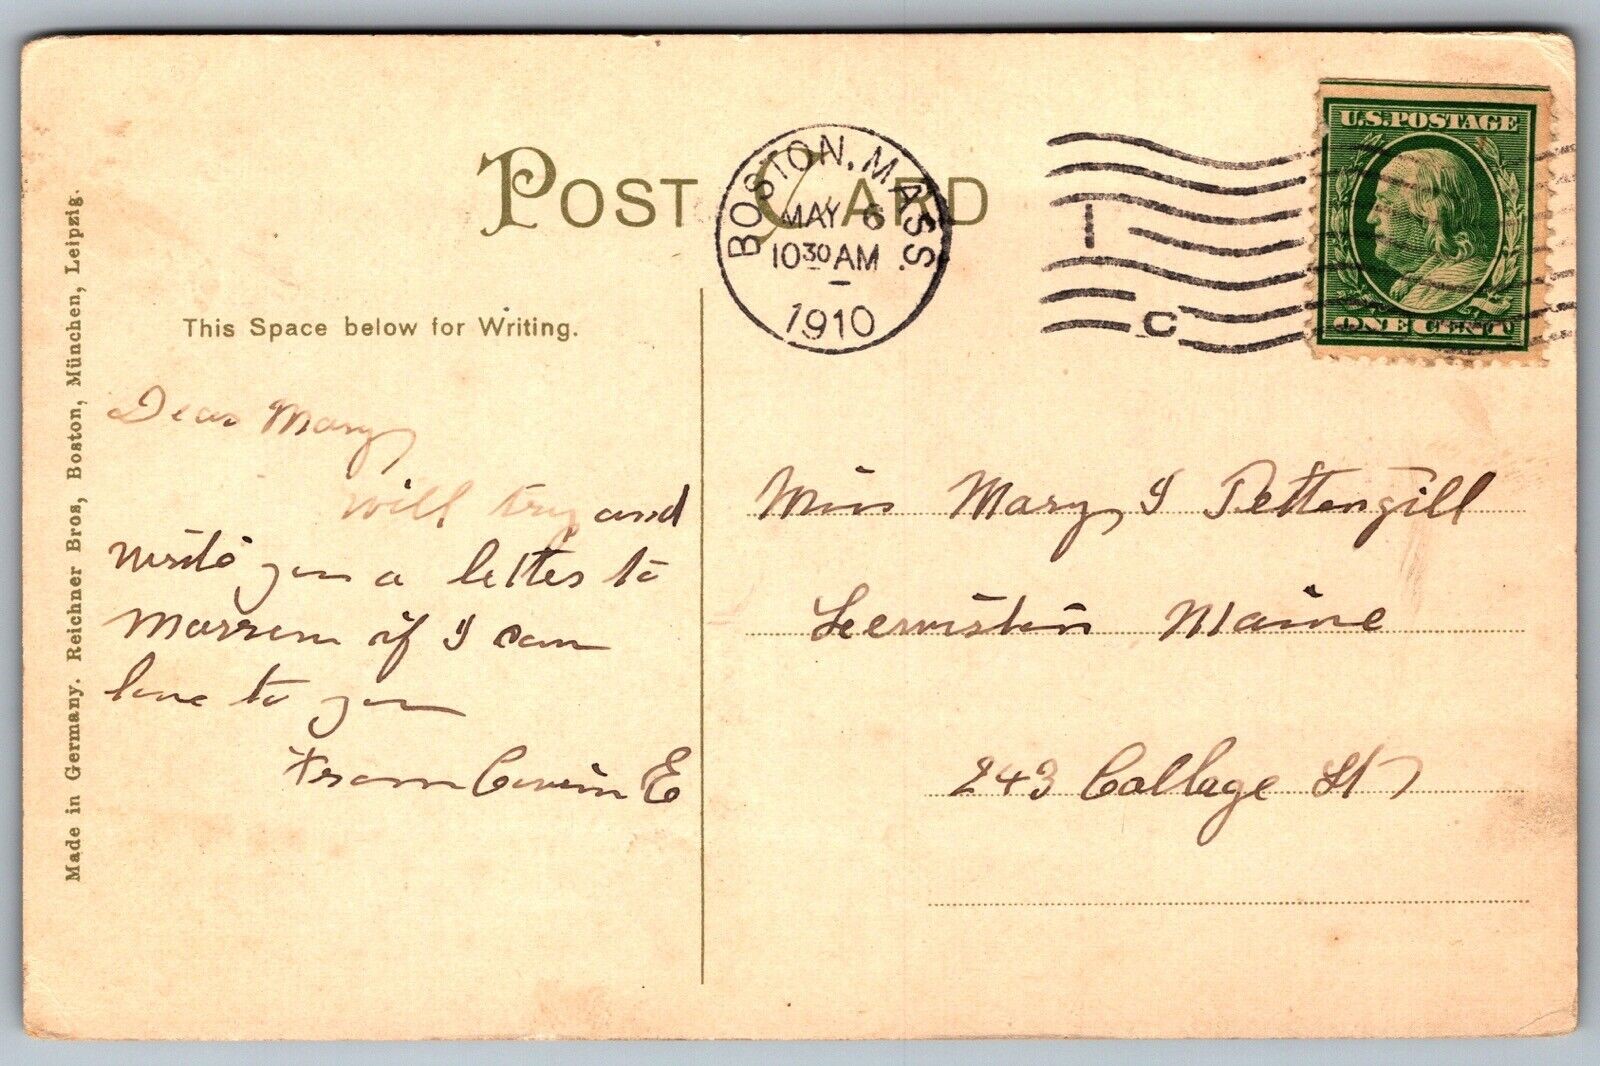 POST CARD
BOSTON, MASS.
MAY 6
10 30 AM
1910
1
C
U.S. POSTAGE
ONE CENT
This Space below for Writing.
Made in Germany. Reichner Bros, Boston, München, Leipzig.
Dear Mary
will try and
write you a letter to
Morrow if I can
love to you
From E
Miss Mary I Pettengill
Leewiston Maine
243 Collage St